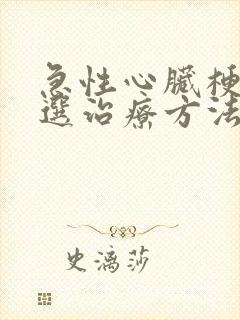 急性心臟梗
選治療方法
史漓莎